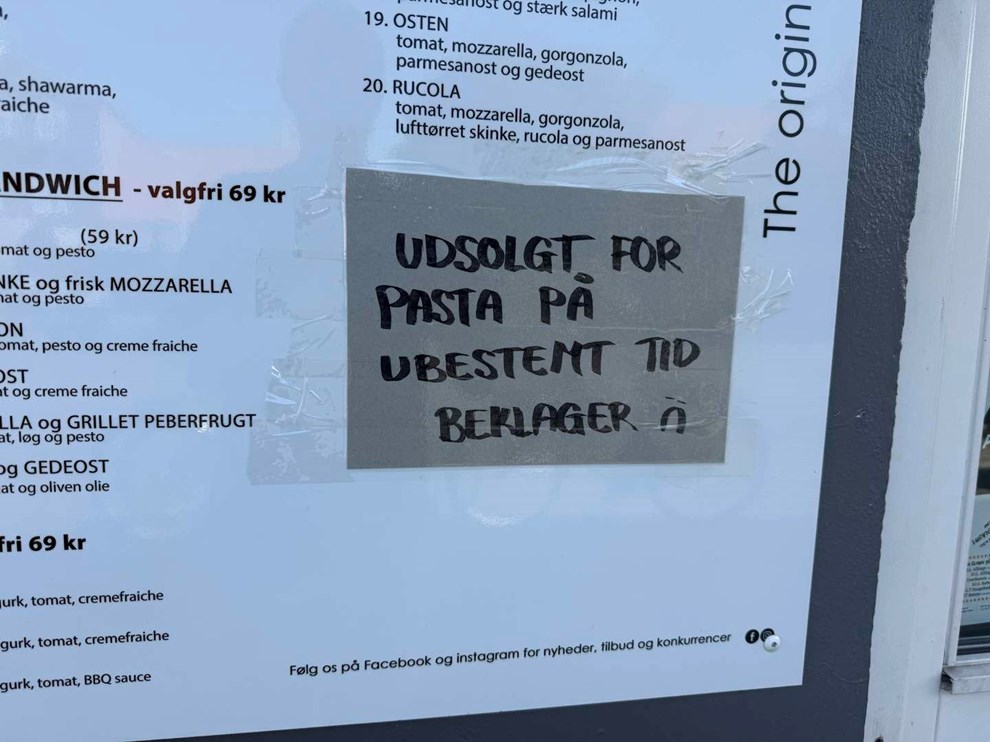 a, shawarma,
raiche
NDWICH - valgfri 69 kr
(59 kr)
mat og pesto
NKE og frisk MOZZARELLA
nat og pesto
ON
omat, pesto og creme fraiche
OST
at og creme fraiche
LLA og GRILLET PEBERFRUGT
at, løg og pesto
og GEDEOST
at og oliven olie
fri 69 kr
gurk, tomat, cremefraiche
gurk, tomat, cremefraiche
gurk, tomat, BBQ sauce
parmesanost og stærk salami
19. OSTEN
tomat, mozzarella, gorgonzola,
parmesanost og gedeost
20. RUCOLA
tomat, mozzarella, gorgonzola,
lufttørret skinke, rucola og parmesanost
UDSOLGT FOR
PASTA PÅ
UBESTEMT TID
BEKLAGER
Følg os på Facebook og instagram for nyheder, tilbud og konkurrencer
The origin